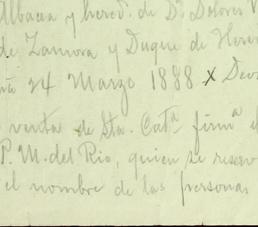 Albacea y hered. de Dª Dolores
de Zamora y Duque de Here
24 Marzo 1888 X Dev
venta de Sta. Catª firmª e
P. M. del Rio, quien se reserv
el nombre de las personas